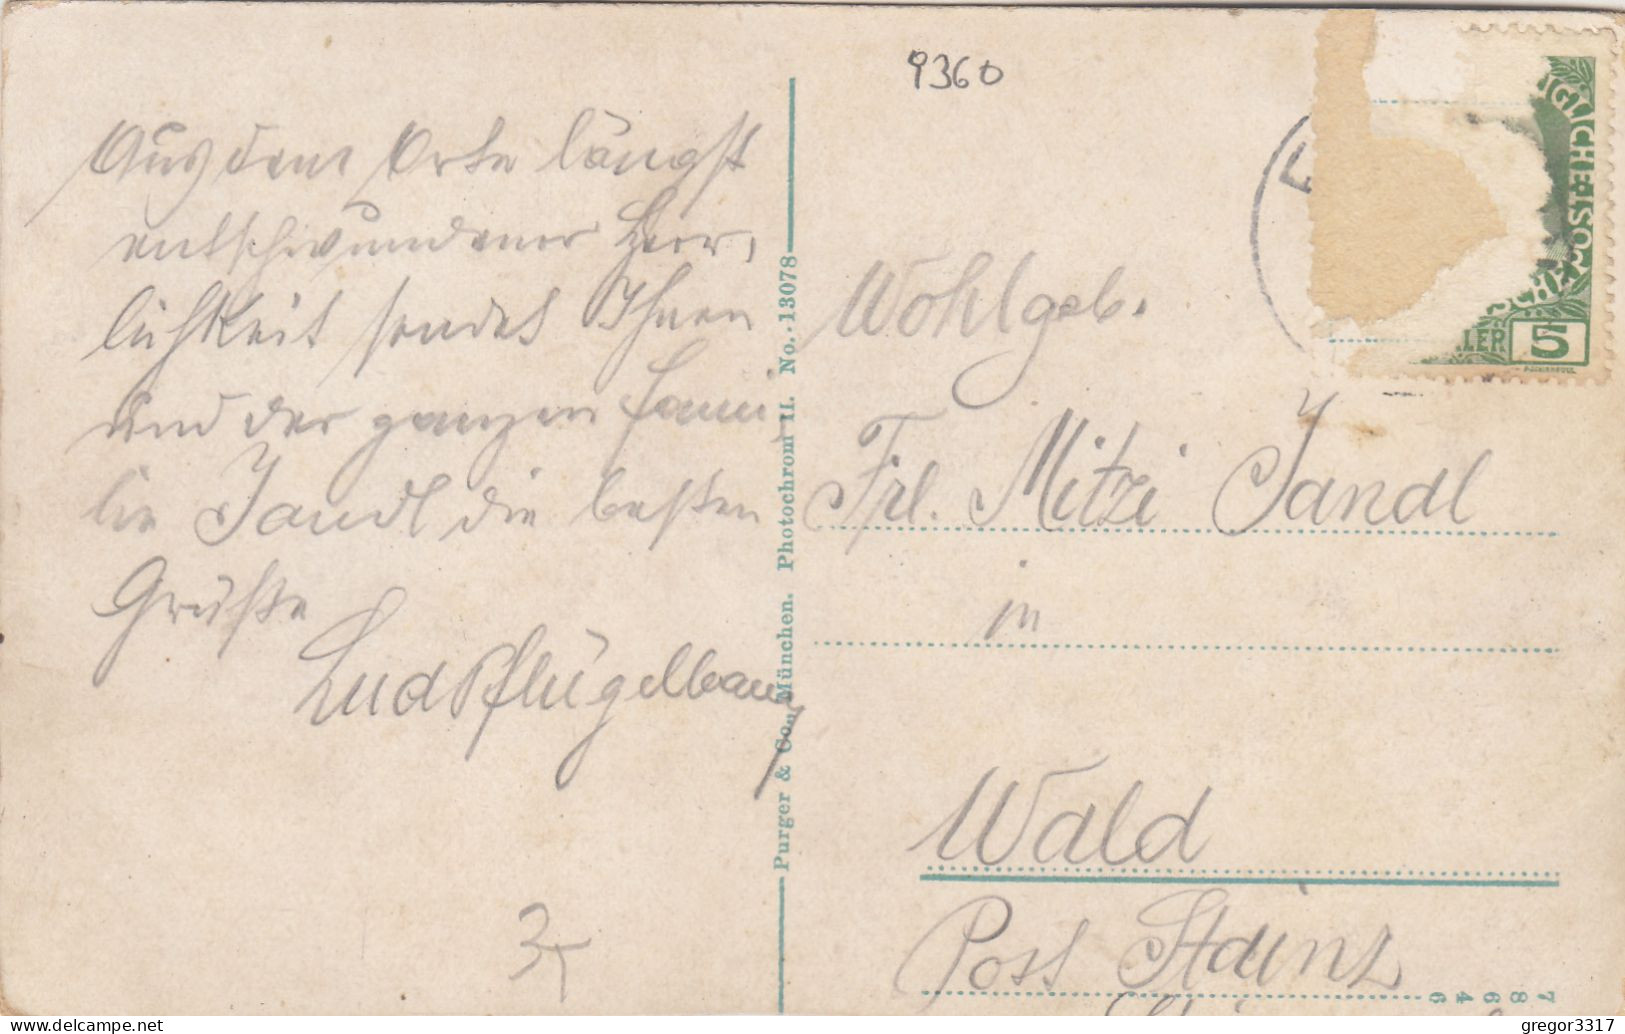 9360
Aus dem Orte längst
entschwundener Herr-
lichkeit sendet Ihnen
und der ganzen Fami-
lie Jandl die besten
Grüße
Lud Pflügelbauer
3
Purger & Co., München. Photochrom II. No. 13078
IGLICHE
POST
SCHE
LER
5
Wohlgeb.
Frl. Mitzi Jandl
in
Wald
Post Stainz
7 8 6 4 6
www.delcampe.net
gregor3317